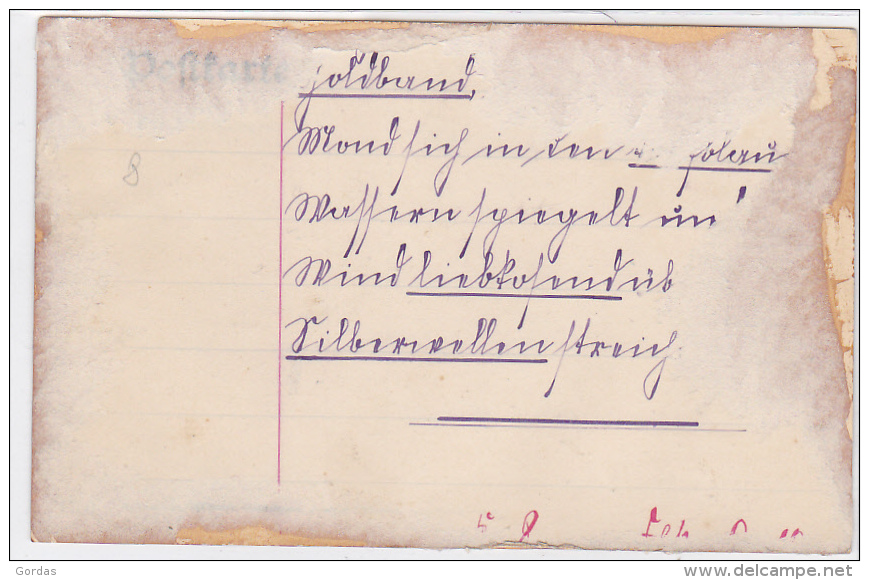 Postkarte
8
Goldband,
Mond sich in den
Wassern spiegelt un'
Wind liebkosend üb
Silberwellen streich
Gordas
delcampe.net